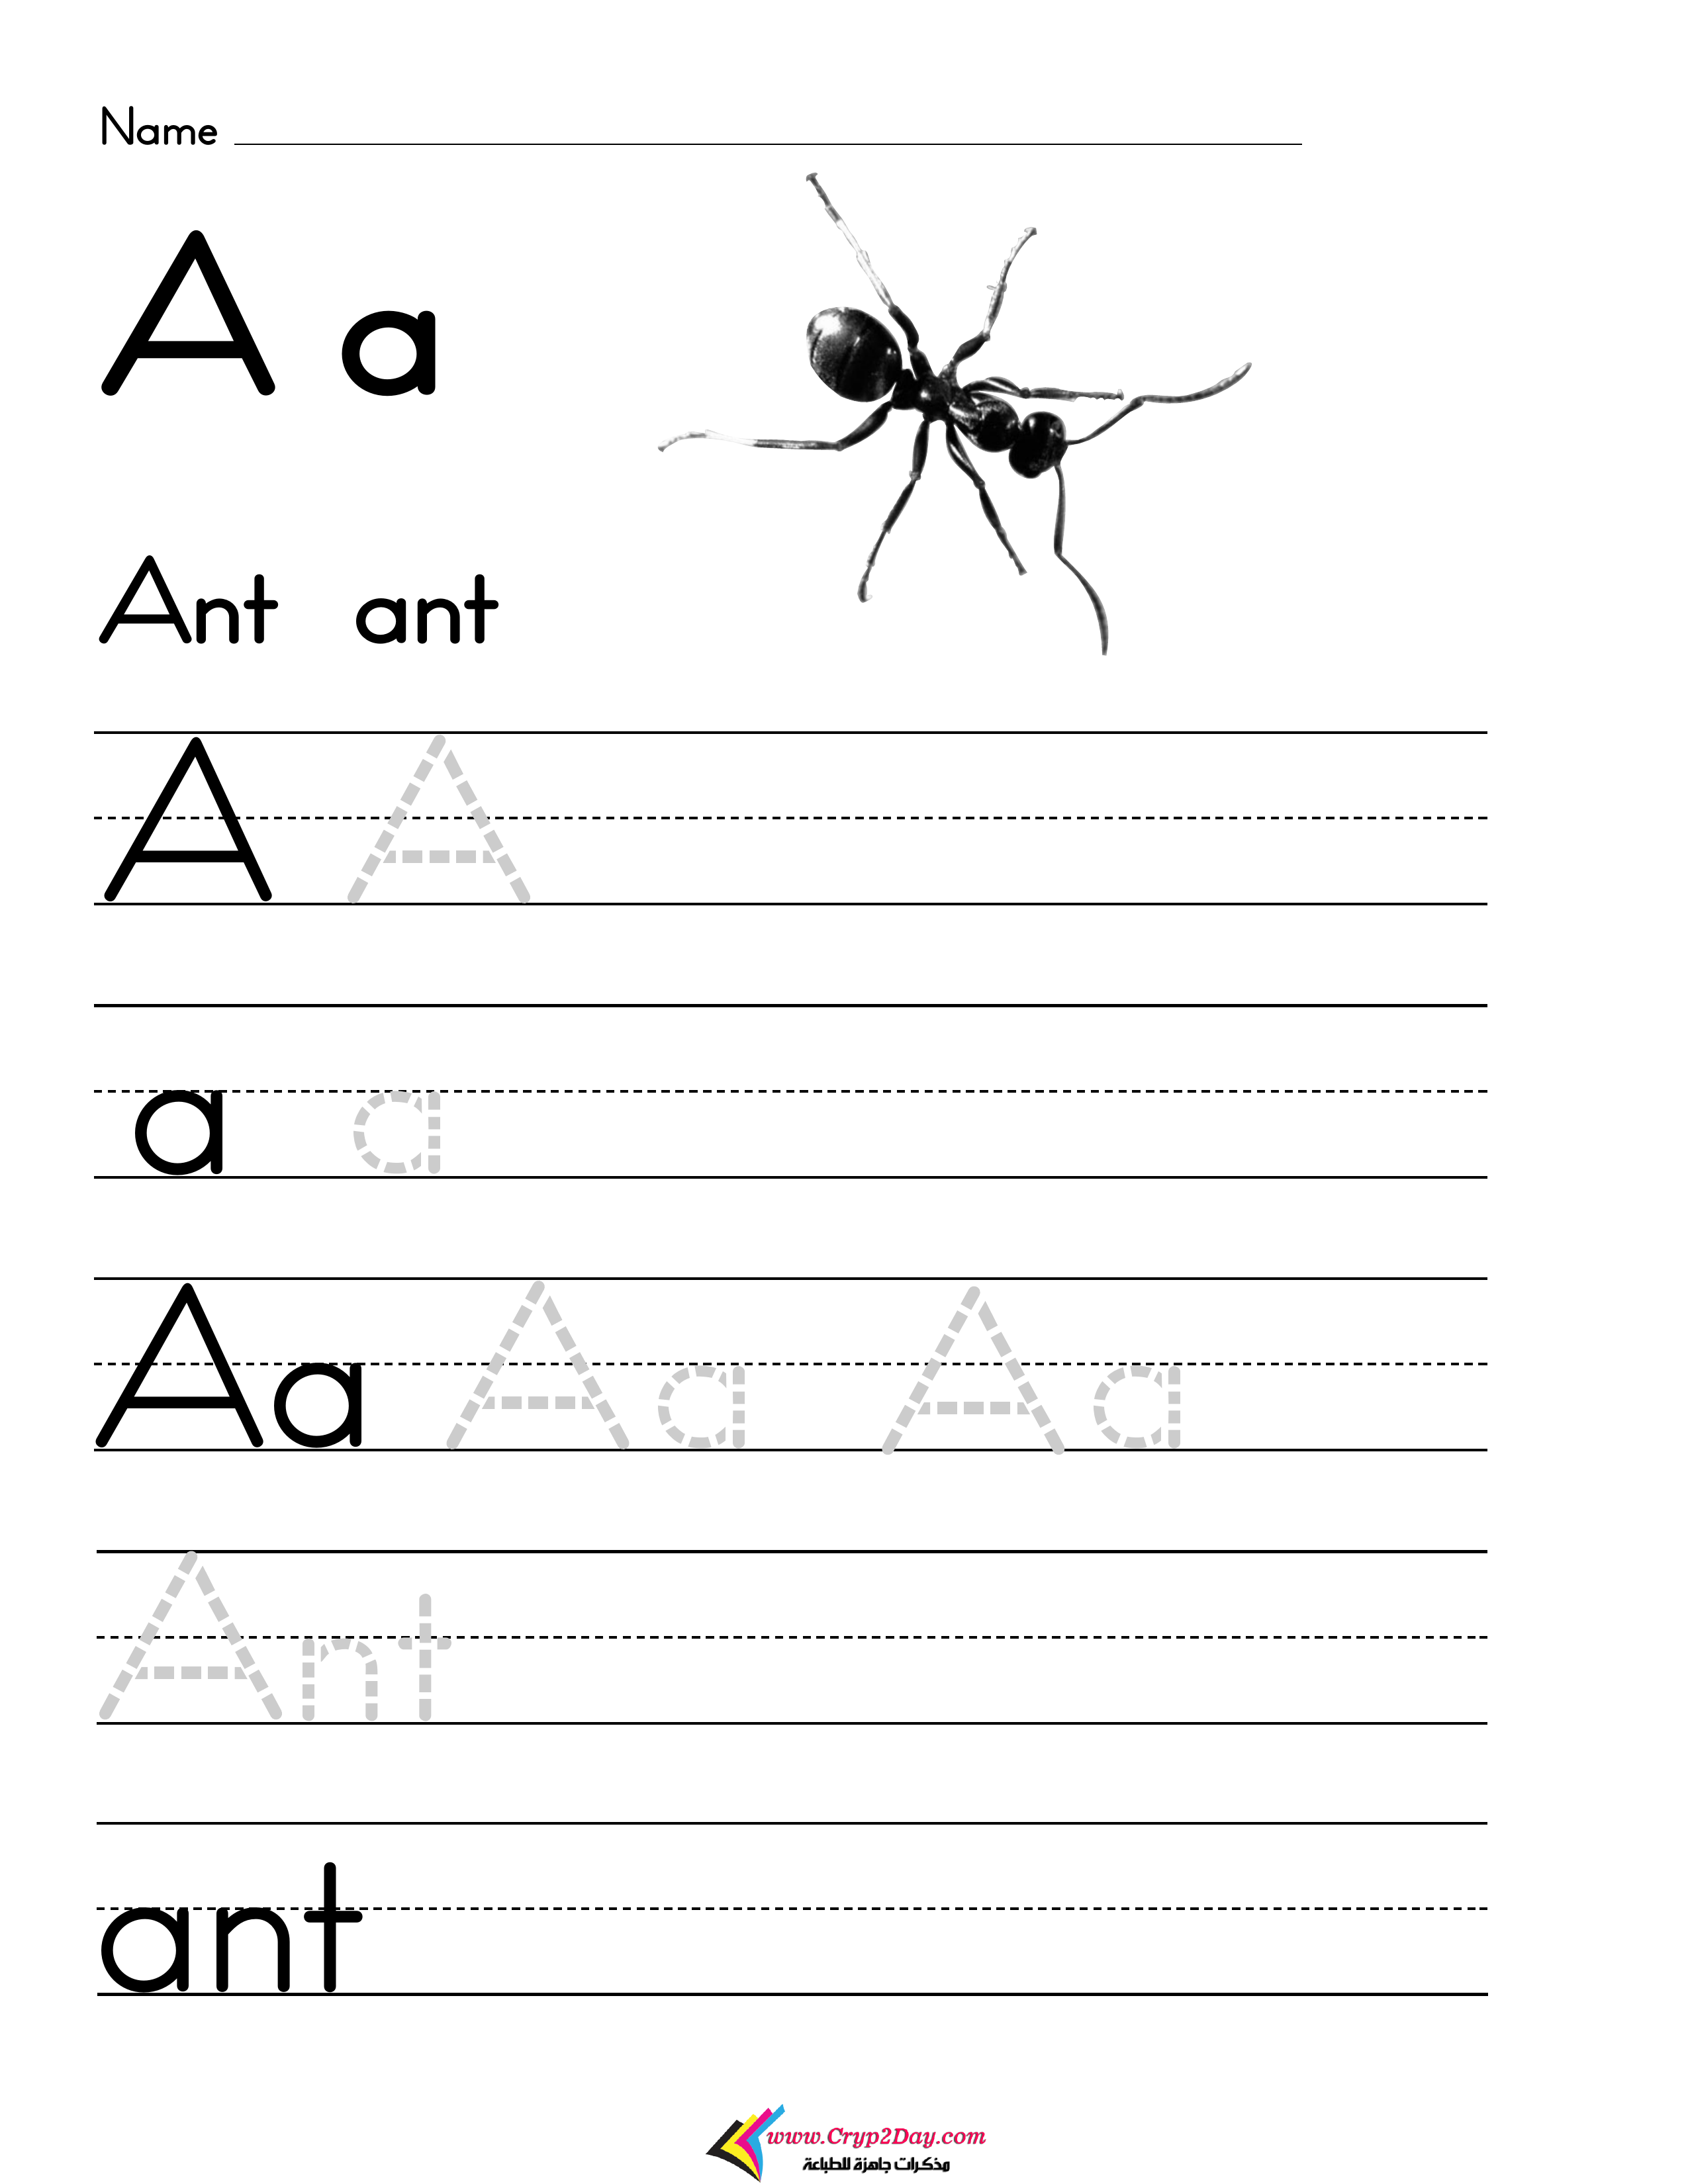 Name
A a
Ant ant
A A
a a
Aa Aa Aa
Ant
ant
www.Cryp2Day.com
مذكرات جاهزة للطباعة